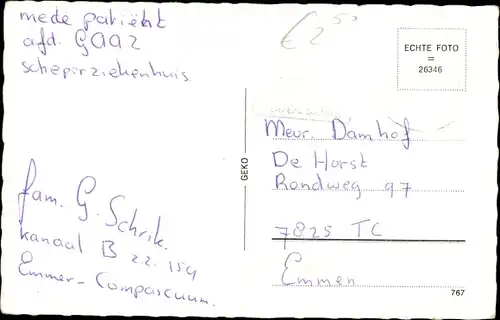 mede patiënt
afd. GAAZ
scheperziekenhuis
fam. G. Schrik.
kanaal B zz. 159
Emmer-Compascuum.
€ 2 50
ECHTE FOTO
=
26346
GEKO
Mevr. Damhof
De Horst
Rondweg 97
7825 TC
Emmen
767